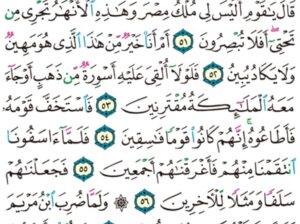 قَالَ يَٰقَوْمِ أَلَيْسَ لِي مُلْكُ مِصْرَ وَهَٰذِهِ ٱلْأَنْهَٰرُ تَجْرِي مِن
تَحْتِيٓ أَفَلَا تُبْصِرُونَ ٥١ أَمْ أَنَا۠ خَيْرٌ مِّنْ هَٰذَا ٱلَّذِي هُوَ مَهِينٌ
وَلَا يَكَادُ يُبِينُ ٥٢ فَلَوْلَآ أُلْقِيَ عَلَيْهِ أَسْوِرَةٌ مِّن ذَهَبٍ أَوْ جَآءَ
مَعَهُ ٱلْمَلَٰٓئِكَةُ مُقْتَرِنِينَ ٥٣ فَٱسْتَخَفَّ قَوْمَهُۥ
فَأَطَاعُوهُ إِنَّهُمْ كَانُوا۟ قَوْمًا فَٰسِقِينَ ٥٤ فَلَمَّآ ءَاسَفُونَا
ٱنتَقَمْنَا مِنْهُمْ فَأَغْرَقْنَٰهُمْ أَجْمَعِينَ ٥٥ فَجَعَلْنَٰهُمْ
سَلَفًا وَمَثَلًا لِّلْءَاخِرِينَ ٥٦ ۞ وَلَمَّا ضُرِبَ ٱبْنُ مَرْيَمَ